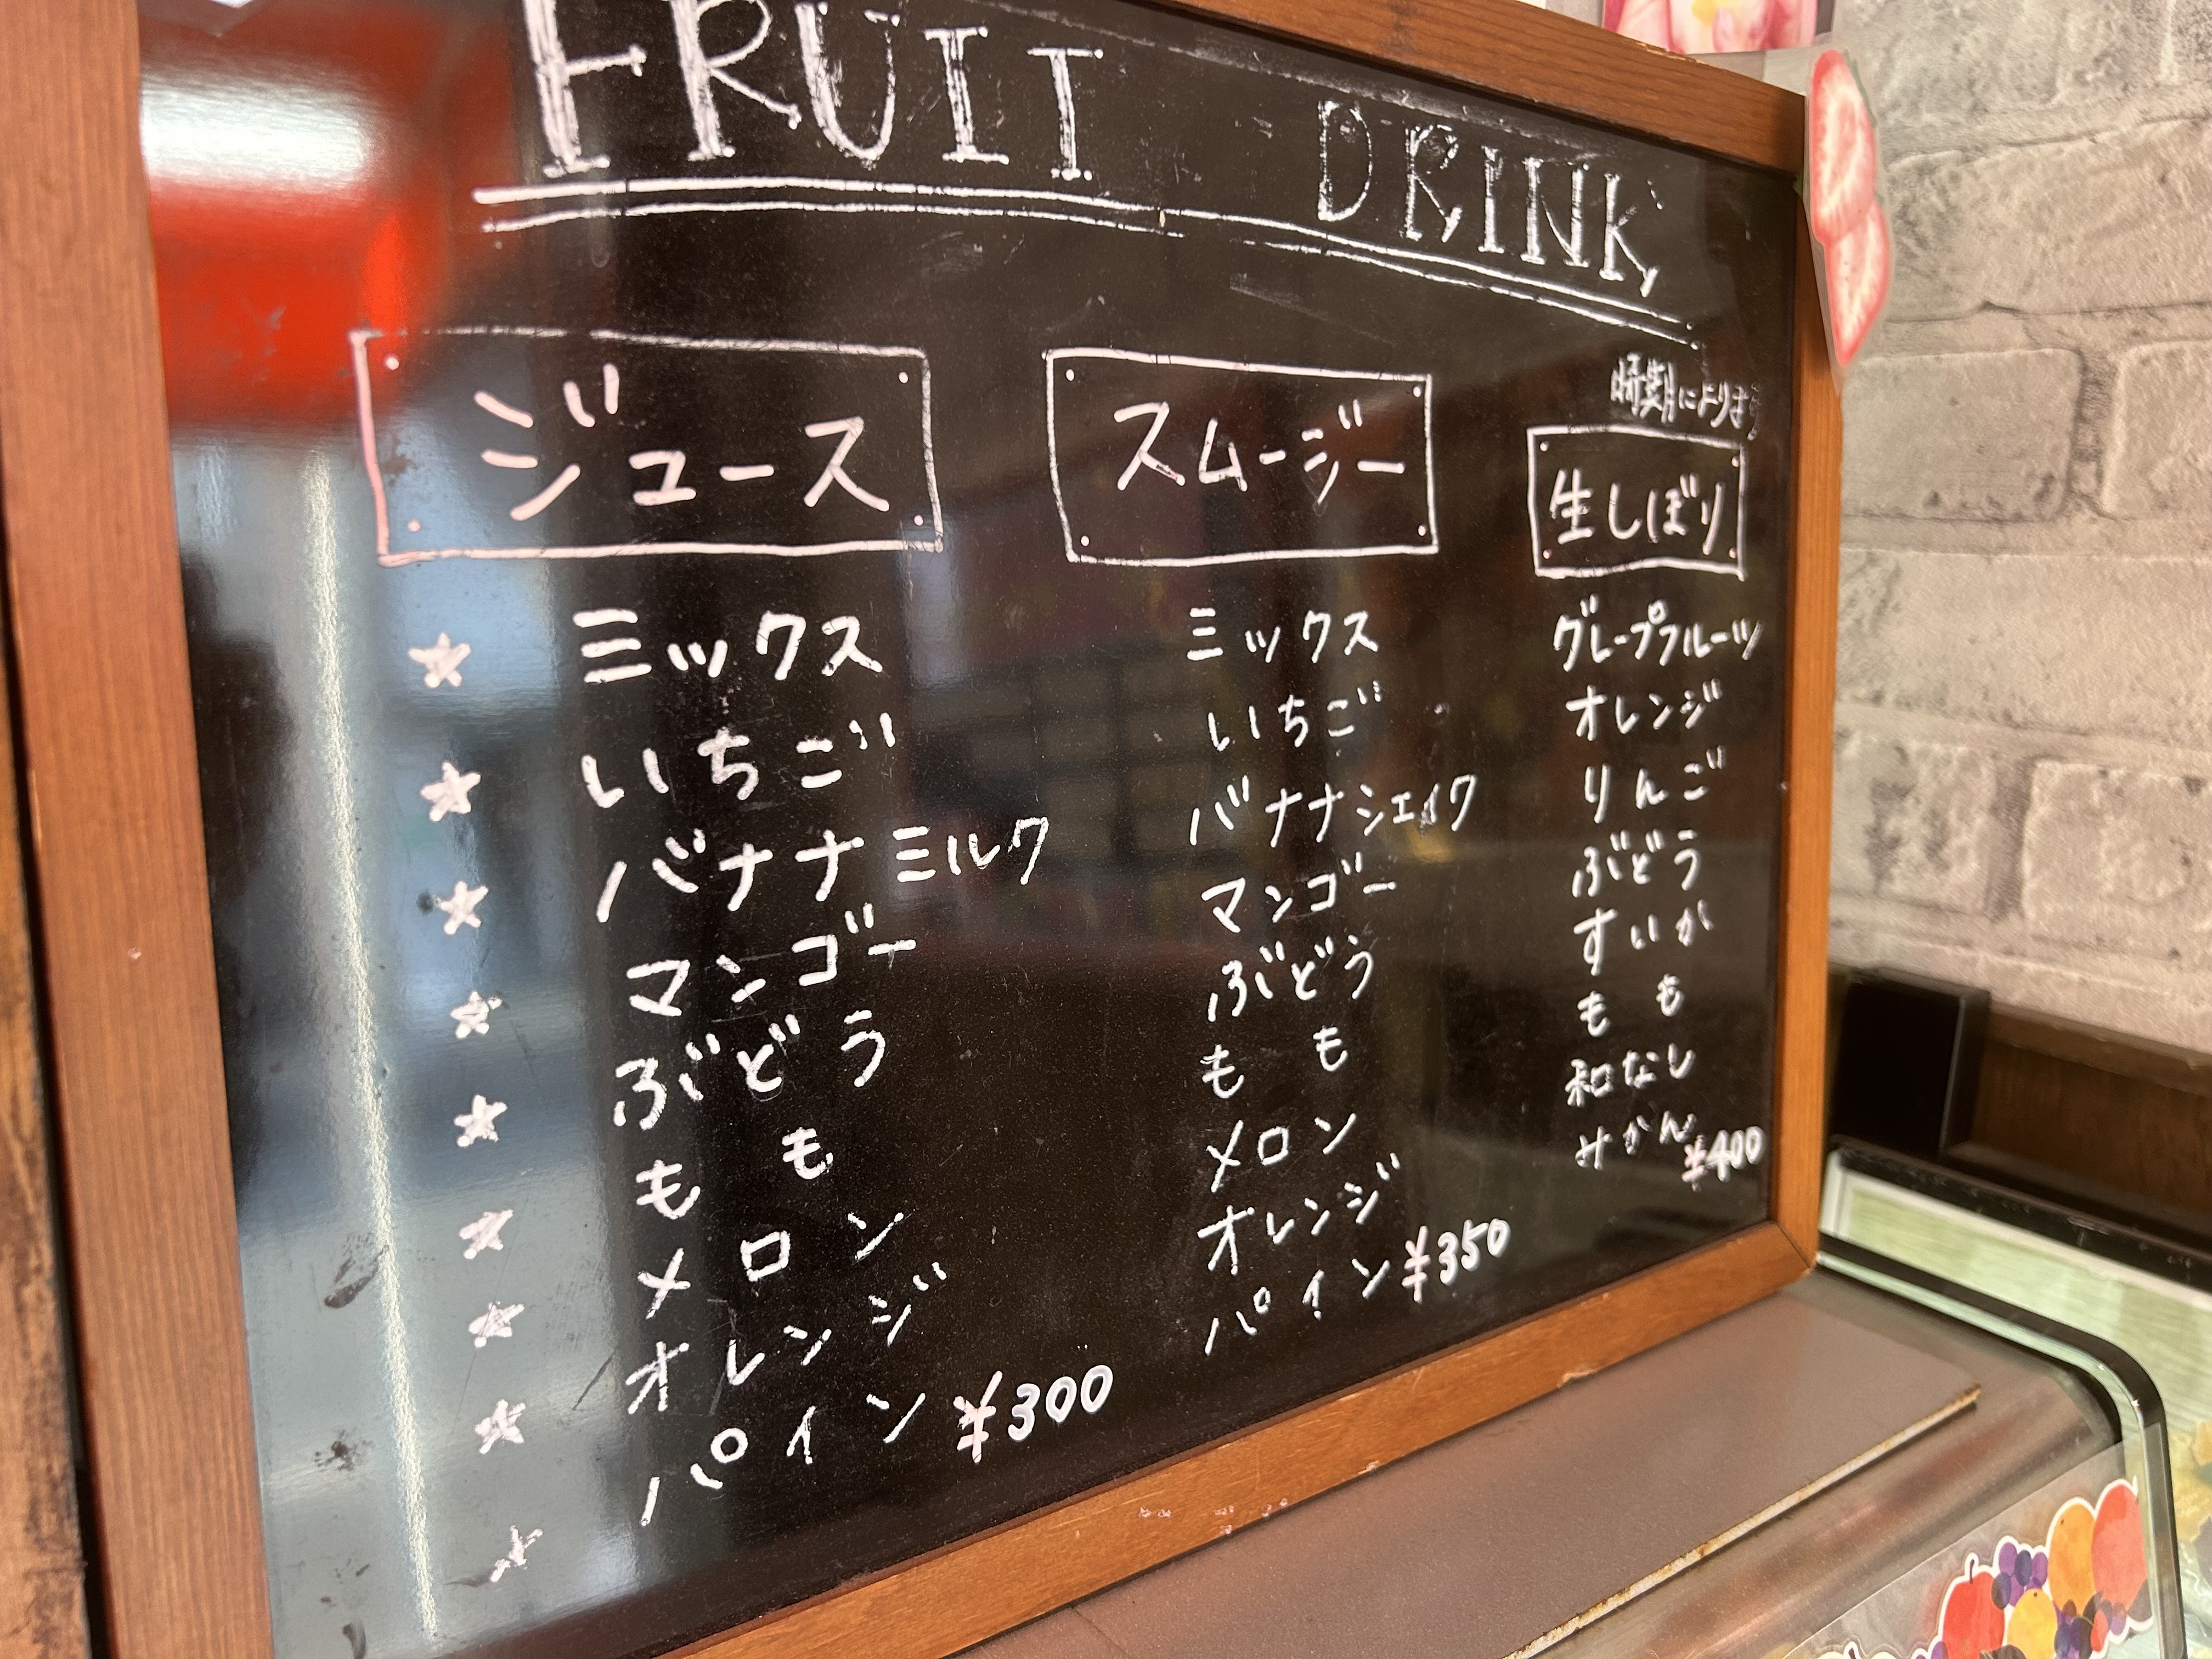 FRUIT DRINK
ジュース
★ ミックス
★ いちご
★ バナナミルク
★ マンゴー
★ ぶどう
★ もも
★ メロン
★ オレンジ
★ パイン ¥300
スムージー
ミックス
いちご
バナナシェイク
マンゴー
ぶどう
もも
メロン
オレンジ
パイン ¥350
時期によります
生しぼり
グレープフルーツ
オレンジ
りんご
ぶどう
すいか
もも
和なし
みかん
¥400